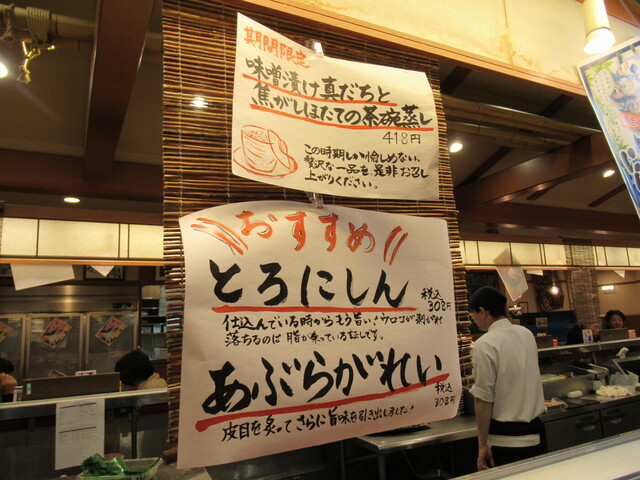 期間限定
味噌漬け真だちと
焦がしほたての茶碗蒸し
418円
この時期しか愉しめない、
贅沢な一品を是非お召し
上がりください。
おすすめ
とろにしん
税込
308円
仕込んでいる時からもう旨い!ウロコが剥がれ
落ちるのは脂が乗っている証しです。
あぶらがれい
税込
308円
皮目を炙ってさらに旨味を引き出しました!